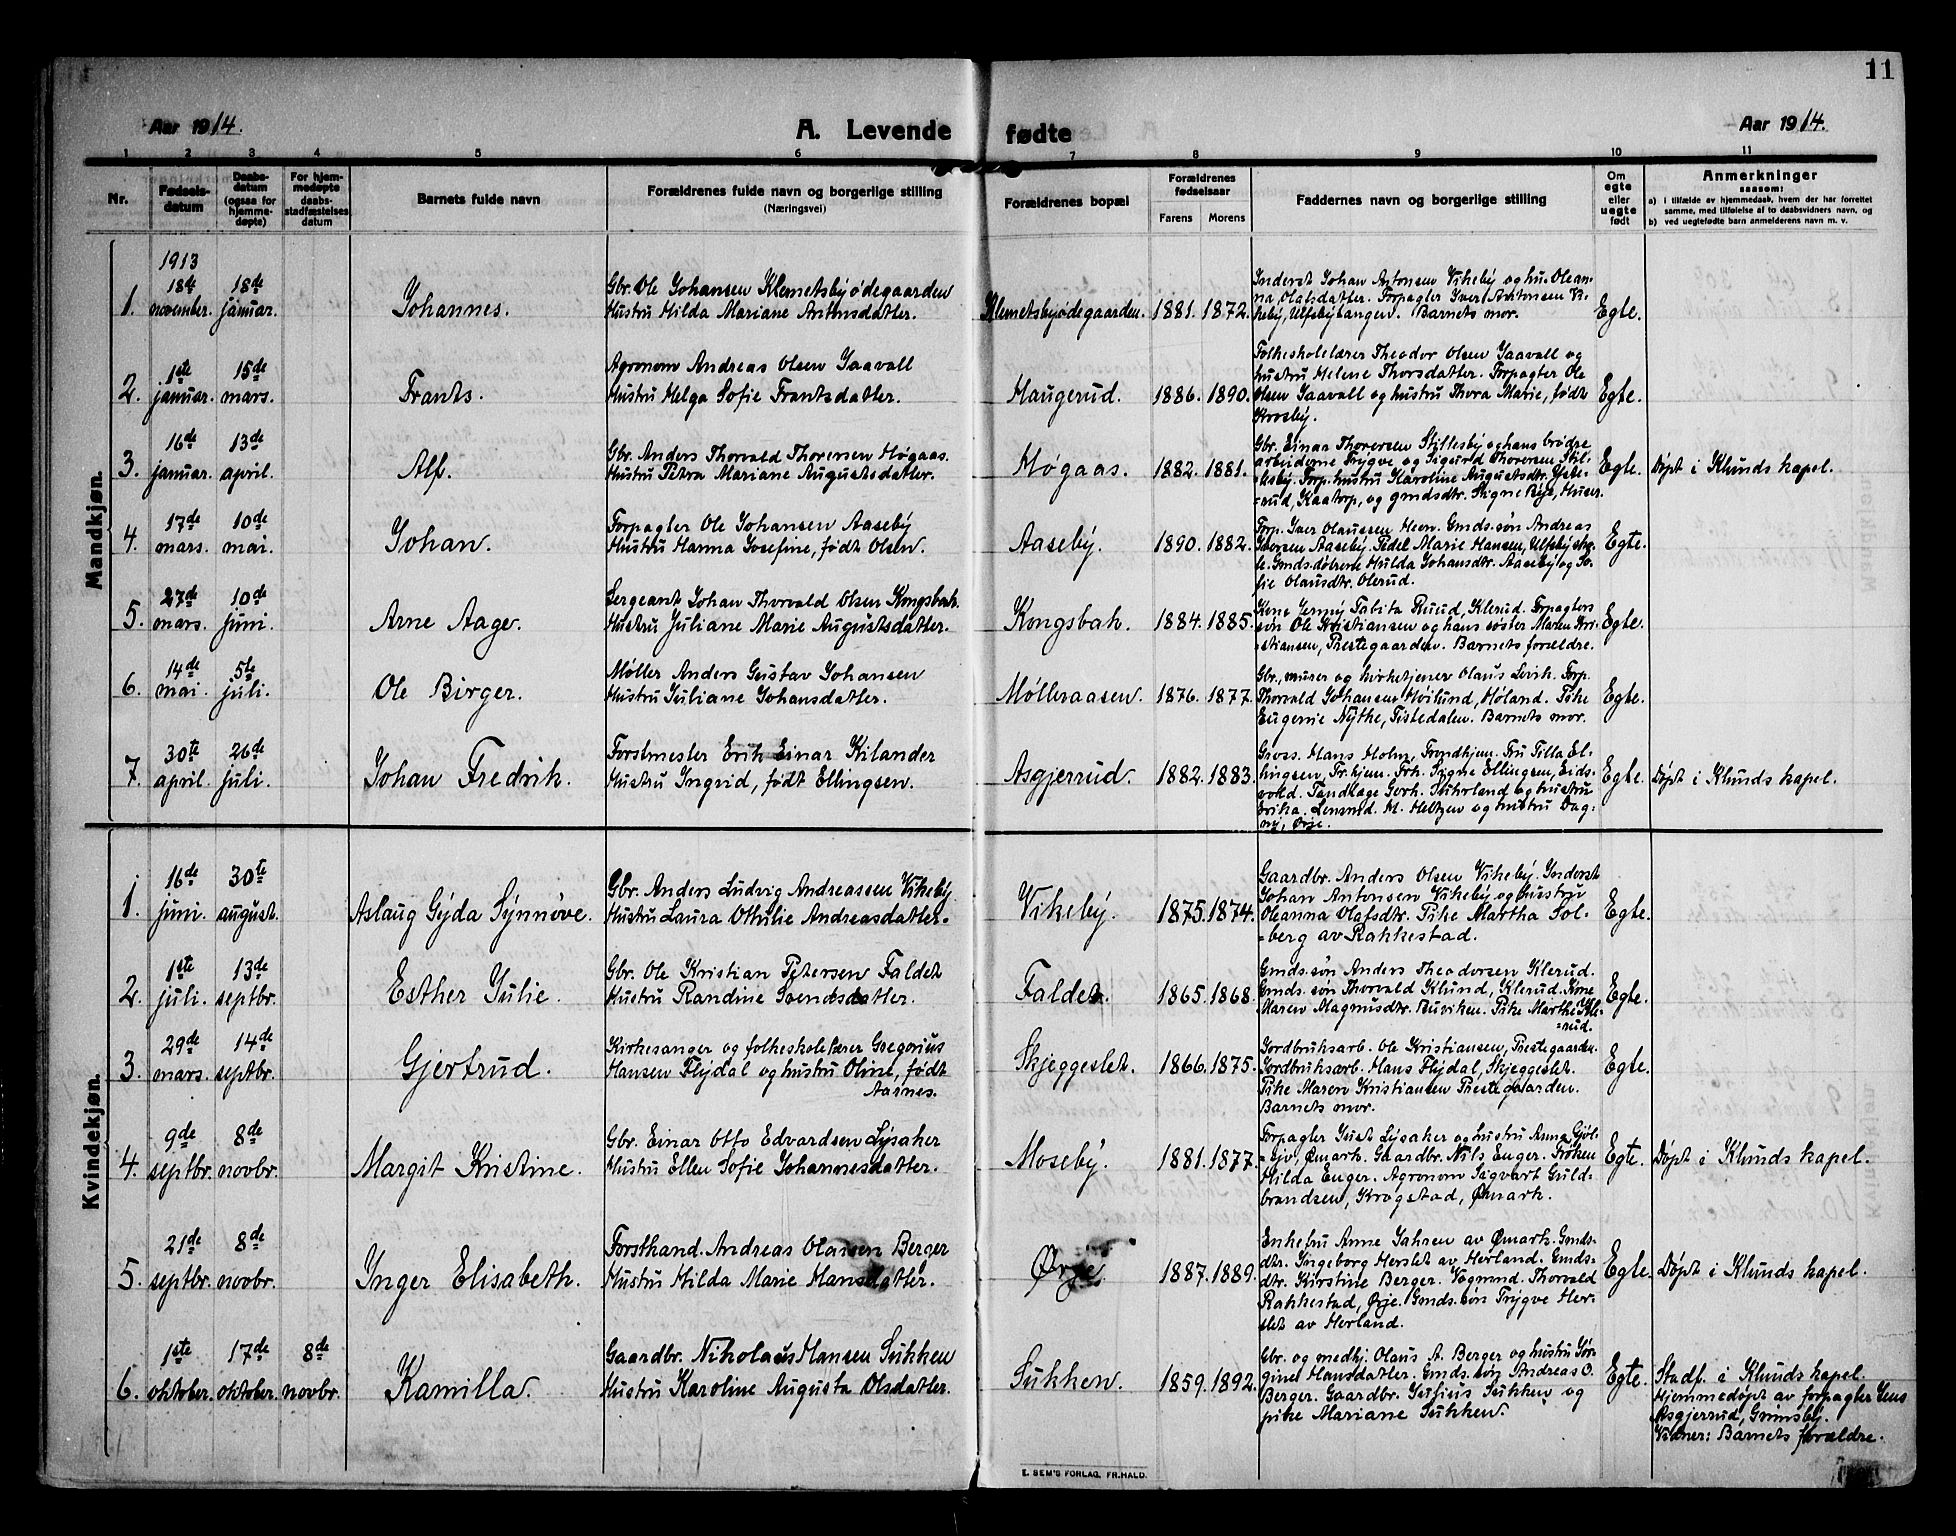 11
Aar 1914.
A. Levende fødte
Aar 1914.
1 2 3 4 5 6 7 8 9 10 11
Nr.
Fødsels-
datum
Daabs-
datum
(ogsaa for
hjemme-
døpte)
For hjem-
medøpte
daabs-
stadfæstelses
datum
Barnets fulde navn
Forældrenes fulde navn og borgerlige stilling
(Næringsvei)
Forældrenes bopæl
Forældrenes
fødselsaar
Farens Morens
Faddernes navn og borgerlige stilling
Om
egte
eller
uegte
født
Anmerkninger
saasom:
a) i tilfælde av hjemmedaab, hvem der har forrettet
samme, med tilføielse af to daabsvidners navn, og
b) ved uegtefødte barn anmelderens navn m. v.
Mandkjøn.
1913
1. 18de november. 18de januar.
Johannes.
Gbr. Ole Johansen Klemetsbyødegaarden
Hustru Hilda Mariane Antonsdatter.
Klemetsbyødegaarden. 1881. 1872.
Inderst Johan Antonsen Vikeby og hu. Olean-
na Olafsdatter. Forpagter Iver Antonsen Vi-
keby, Ulfsbytangen. Barnets mor.
Egte.
2. 1ste januar. 15de mars.
Frants.
Agronom Andreas Olsen Taavall
Hustru Helga Sofie Frantsdatter.
Haugerud. 1886. 1890.
Folkeskolelærer Theodor Olsen Taavall og
hustru Helene Thorsdatter. Forpagter Ole
Olsen Taavall og hustru Thora Marie, født
Krosby.
Egte.
3. 16de januar. 13de april.
Alf.
Gbr. Anders Thorvald Thoresen Høgaas.
Hustru Petra Mariane Augustsdatter.
Høgaas. 1882. 1881.
Gbr. Einar Thoresen Stillesby og hans brødre
arbeiderne Trygve og Sigurd Thoresen, Stil-
lesby. Forp. hustru Karoline Augustsdtr. Yste-
=rud, Kaatorp, og gmdsdtr. Signe Bye, Huser.
Egte. Døpt i Klunds kapel.
4. 17de mars. 10de mai.
Johan.
Forpagter Ole Johansen Aaseby
Hustru Hanna Josefine, født Olsen.
Aaseby. 1890. 1882.
Forp. Iver Olaussen Heen. Gmds.søn Andreas
Thorsen Aaseby. Pedel Marie Hansen, Ulfsby sko-
le. Gmds.døtrene Hulda Johansdtr. Aaseby og So-
fie Olausdtr. Olerud.
Egte.
5. 27de mars. 10de juni.
Arne Aage.
Sergeant Johan Thorvald Olsen Kongsbak.
Hustru Juliane Marie Augustsdatter.
Kongsbak. 1884. 1885.
Kone Jenny Tabita Ruud, Klerud. Forpagters
søn Ole Kristiansen og hans søster Maren Kri-
stiansen, Prestegaarden. Barnets forældre.
Egte.
6. 14de mai. 5te juli.
Ole Birger.
Møller Anders Gustav Johansen
Hustru Juliane Johansdatter.
Mølleraasen. 1876. 1877.
Gbr., murer og kirketjener Olaus Levik. Forp.
Thorvald Johansen Hvilund, Høland. Pike
Eugenie Nythe, Tistedalen. Barnets mor.
Egte.
7. 30te april. 26de juli.
Johan Fredrik.
Forstmester Erik Einar Kilander
Hustru Ingrid, født Ellingsen.
Asgjerrud. 1882. 1883.
Gross. Hans Holm, Trondhjem. Fru Tilla El-
lingsen, Tr.hjem. Frk. Signe Ellingsen, Eids-
vold. Tandlæge Gerh. Suhrland og hustru
Erika. Lensmd. M. Heltzen og hustru Dag-
ny, Ørje.
Egte. Døpt i Klunds kapel.
Kvindekjøn.
1. 16de juni. 30te august.
Aslaug Gyda Synnøve.
Gbr. Anders Ludvig Andreassen Vikeby.
Hustru Laura Othilie Andreasdatter.
Vikeby. 1875. 1874.
Gaardbr. Anders Olsen Vikeby. Inderst
Johan Antonsen Vikeby og hustru
Oleanna Olafsdtr. Pike Martha Sol-
=berg av Rakkestad.
Egte.
2. 1ste juli. 13de septbr.
Esther Julie.
Gbr. Ole Kristian Petersen Faldet
Hustru Randine Svendsdatter.
Faldet. 1865. 1868.
Gmds.søn Anders Theodorsen Klerud.
Gmds.søn Thorvald Klund, Klerud. Kone
Maren Magnusdtr. Buviken. Pike Marthe Kle-
=rud.
Egte.
3. 29de mars. 14de septbr.
Gjertrud.
Kirkesanger og folkeskolelærer Gregorius
Hansen Fløjdal og hustru Oline, født
Aarnes.
Skjeggeslet. 1866. 1875.
Jordbruksarb. Ole Kristiansen, Prestegaarden.
Jordbruksarb. Hans Fløjdal, Skjeggeslet.
Pike Maren Kristiansen Prestegaarden.
Barnets mor.
Egte.
4. 9de septbr. 8de novbr.
Margit Kristine.
Gbr. Einar Otto Edvardsen Lysaker
Hustru Ellen Sofie Johannesdatter.
Moseby. 1881. 1877.
Forpagter Just Lysaker og hustru Anna, Gjøl-
=sjø, Ømark. Gaardbr. Nils Enger. Frøken
Hilda Enger. Agronom Sigvart Guld-
brandsen, Krogstad, Ømark.
Egte. Døpt i Klunds kapel.
5. 21de septbr. 8de novbr.
Inger Elisabeth.
Forsthand. Andreas Olausen Berger
Hustru Hilda Marie Hansdatter.
Ørje 1887. 1889.
Enkefru Anne Jahren av Ømark. Gmds-
dtr. Ingeborg Herslet av Herland. Gmds-
dtr. Kirstine Berger. Vognmd. Thorvald
Rakkestad, Ørje. Gmds.søn Trygve Her-
slet av Herland.
Egte. Døpt i Klunds kapel.
6. 1ste oktober. 17de oktober. 8de novbr.
Kamilla.
Gaardbr. Nikolaus Hansen Sukken
Hustru Karoline Augusta Olsdatter.
Sukken. 1859. 1892.
Gbr. og medhj. Olaus A. Berger og hustru Jør-
gine Hansdatter. Gmds.søn Andreas O.
Berger. Gaardbr. Julius Sukken og
pike Mariane Sukken.
Egte. Stadf. i Klunds kapel.
Hjemmedøpt av forpagter Jens
Asgjerrud, Grimsby.
Vidner: Barnets forældre.
E. SEM'S FORLAG, FR.HALD.